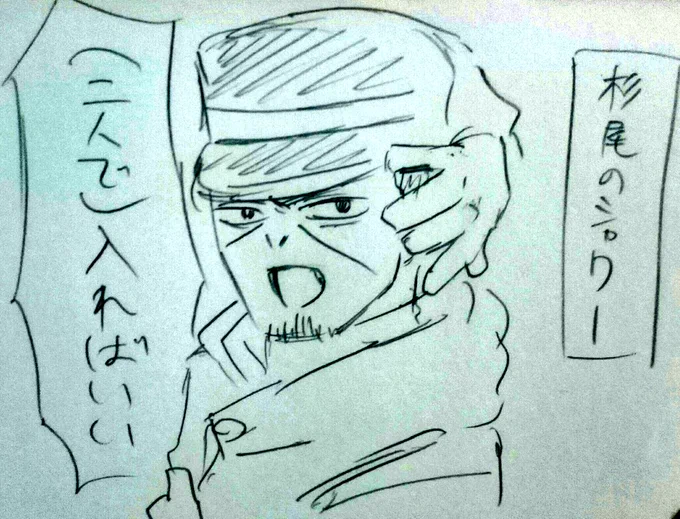 杉尾のシャワー
(二人で)入ればいい